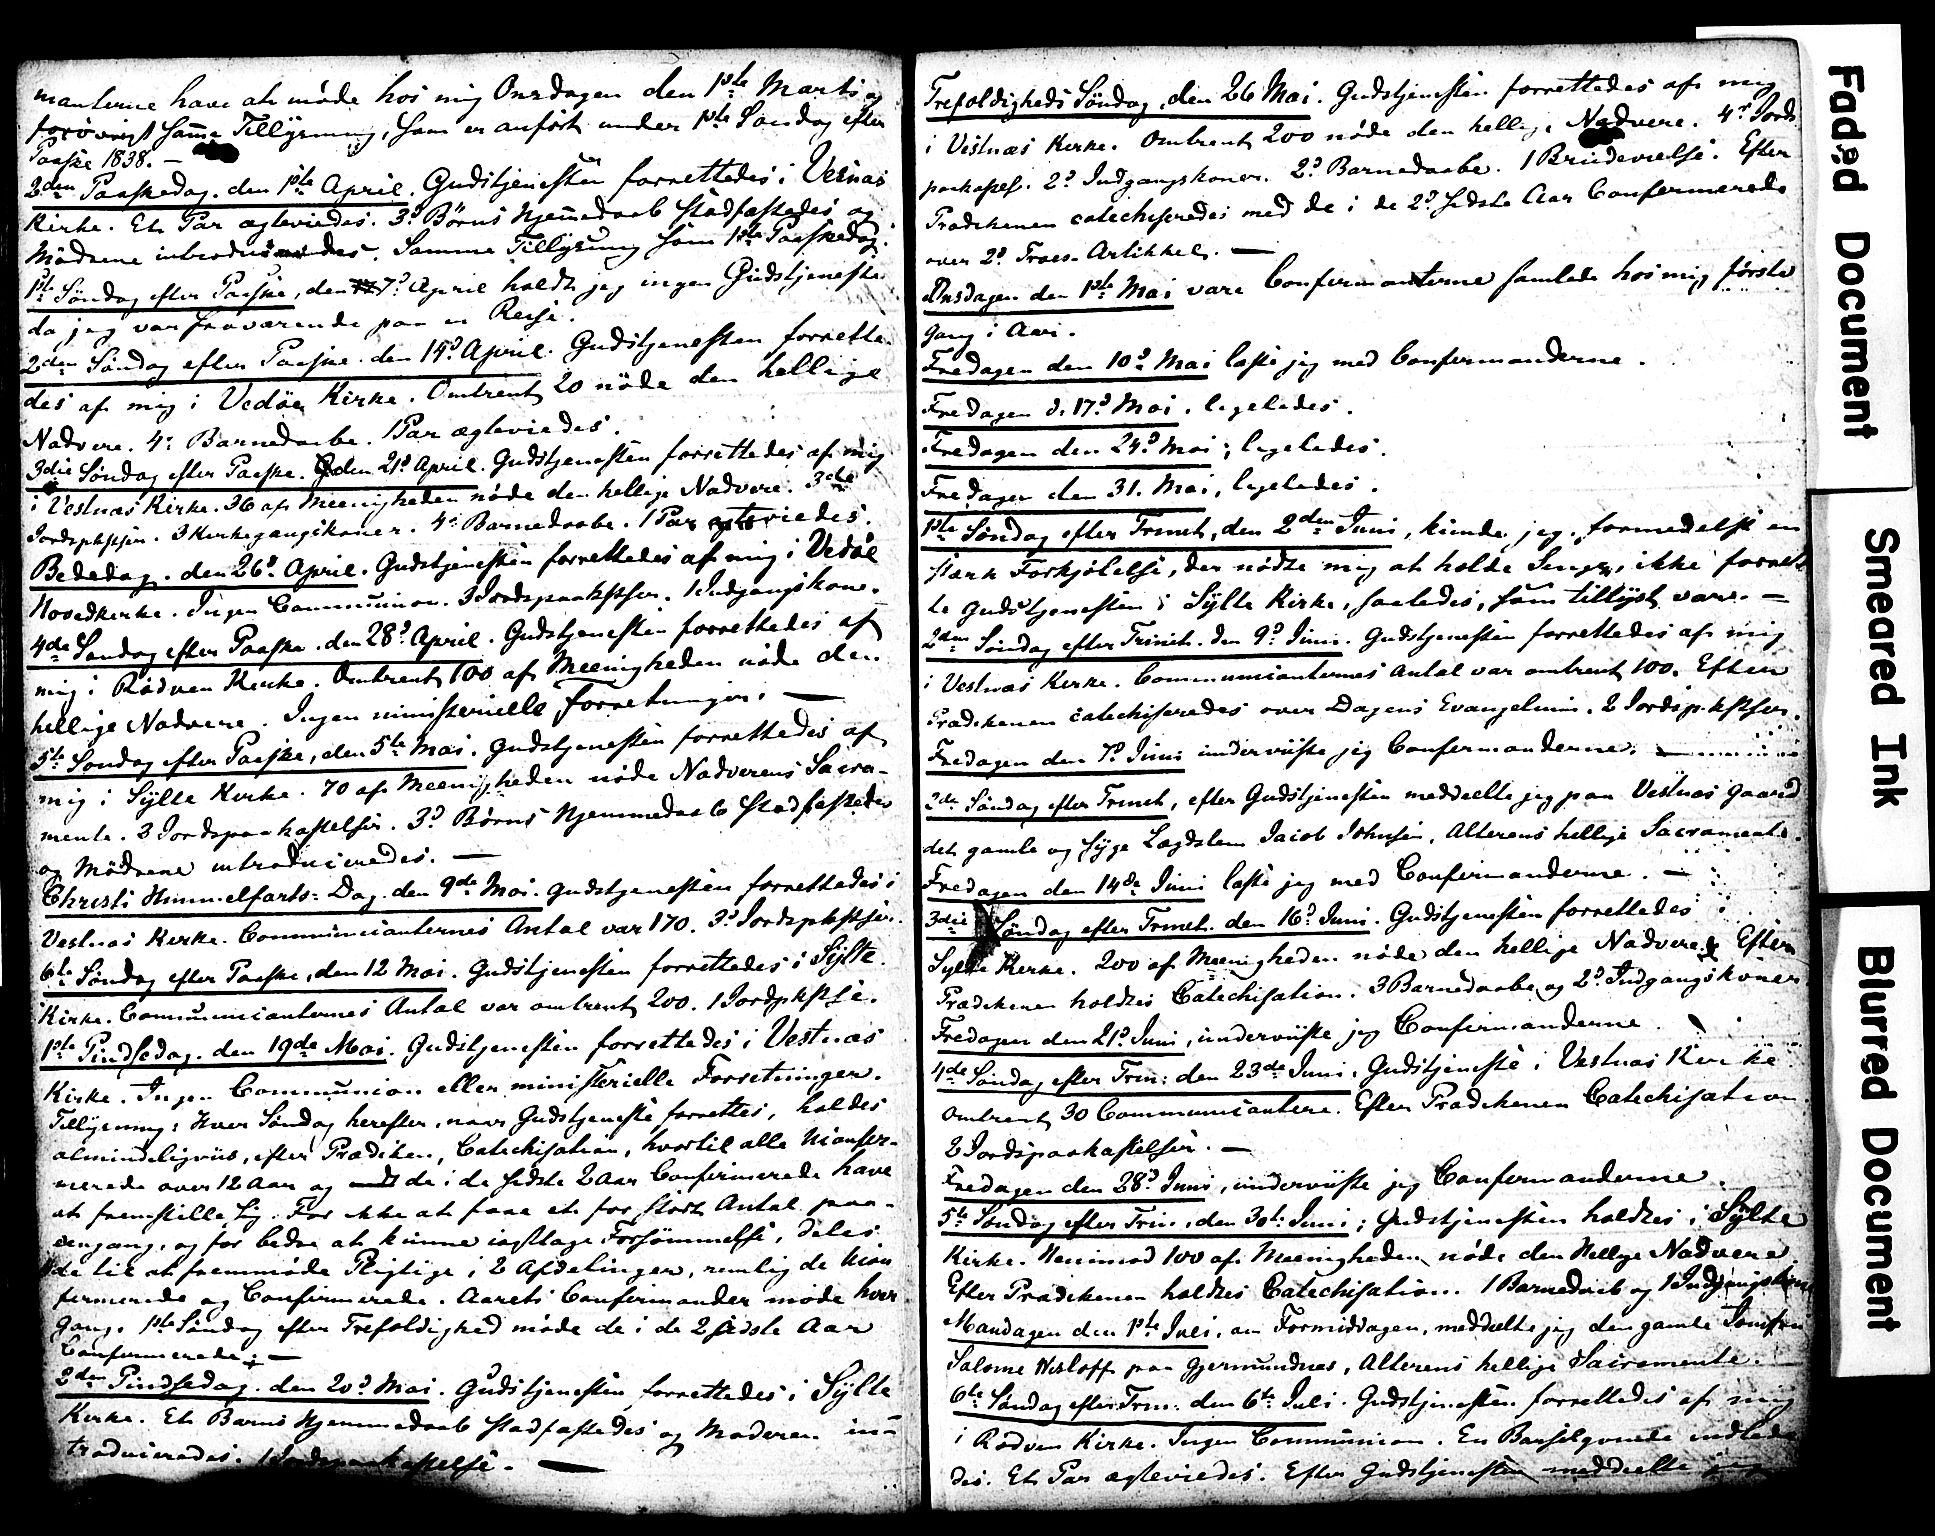 manterne have at møde hos mig Onsdagen den 1ste Marts og
forøvrigt samme Tillysning, som er anført under 1ste Søndag efter
Paaske 1838. —
2den Paaskedag. den 1ste April. Gudstjenesten forrettedes i Vesnæs
Kirke. Et Par ægteviedes. 3de Børns Hjemmedaab stadfæstedes og
Mødrene introduceredes. Samme Tillysning som 1ste Paaskedag.
1ste Søndag efter Paaske, den 7de April holdt jeg ingen Gudstjeneste
da jeg var fraværende paa en Reise.
2den Søndag efter Paaske. den 14de April. Gudstjenesten forrette-
des af mig i Vedøe Kirke. Omtrent 20 nøde den hellige
Nadvere. 4re Barnedaabe. 1 Par ægteviedes.
3die Søndag efter Paaske. den 21de April. Gudstjenesten forrettedes af mig
i Vestnæs Kirke. 36 af Meenigheden nøde den hellige Nadvere. 3de
Jordpkstser. 3 Kirkegangskoner. 4re Barnedaabe. 1 Par ægteviedes.
Bededag. den 26de April. Gudstjenesten forrettedes af mig i Vedøe
Hovedkirke. Ingen Communion. 3 Jordspaakstser. 1 Indgangskone.
4de Søndag efter Paaske. den 28de April. Gudstjenesten forrettedes af
mig i Rødven Kirke. Omtrent 100 af Meenigheden nøde den
hellige Nadvere. Ingen ministerielle Forretninger. —
5te Søndag efter Paaske, den 5te Mai. Gudstjenesten forrettedes af
mig i Sylte Kirke. 70 af Meenigheden nøde Nadverens Sacra-
mente. 3 Jordspaakastelser. 3de Børns Hjemmedaab stadfæstedes
og Mødrene introduceredes. —
Christi Himmelfarts-Dag. den 9de Mai. Gudstjenesten forrettedes i
Vestnæs Kirke. Communicanternes Antal var 170. 3de Jordspkstser.
6te Søndag efter Paaske, den 12 Mai. Gudstjenesten forrettedes i Sylte
Kirke. Communicanternes Antal var omtrent 200. 1 Jordpkstse.
1ste Pindsedag. den 19de Mai. Gudstjenesten forrettedes i Vestnæs
Kirke. Ingen Communion eller ministerielle Forretninger.
Tillysning: Hver Søndag herefter, naar Gudstjeneste forrettes, holdes
almindeligviis, efter Prædiken, Catechisation, hvortil alle Uconfir-
merede over 12 Aar og de i de sidste 2 Aar Confirmerede have
at fremstille sig. For ikke at faae et for stort Antal paa-
eengang, og for bedre at kunne iagttage Forsømmelse, deles
de til at fremmøde Pligtige i 2 Afdelinger, nemlig de Ucon
firmerede og Confirmerede. Aarets Confirmander møde hver
Gang. 1ste Søndag efter Trefoldighed møde de i de 2 sidste Aar
Confirmerede. —
2den Pindsedag. den 20de Mai. Gudstjenesten forrettedes i Sylte
Kirke. Et Barns Hjemmedaab stadfæstedes og Moderen in-
troduceredes. 1 Jordspaakastelse. —
Trefoldigheds Søndag, den 26 Mai. Gudstjenesten forrettedes af mig
i Vestnæs Kirke. Omtrent 200 nøde den hellige Nadvere. 4re Jords
paakastels. 2de Indgangskoner. 2de Barnedaabe. 1 Brudevielse. Efter
Prædikenen catechiseredes med de i de 2de sidste Aar Confirmerede
over 2den Troes-Artikkel. —
Onsdagen den 1ste Mai vare Confirmanterne samlede hos mig første
Gang i Aar.
Fredagen den 10de Mai læste jeg med Confirmanderne.
Fredagen d. 17de Mai. ligeledes.
Fredagen den 24de Mai; ligeledes.
Fredagen den 31. Mai, ligeledes.
1ste Søndag efter Trinit, den 2den Juni, kunde jeg, formedelst en
stærk Forkjølelse, der nødte mig at holde Sengen, ikke forret
te Gudstjenesten i Sylte Kirke, saaledes, som tillyst var. —
2den Søndag efter Trinit. den 9de Juni. Gudstjenesten forrettedes af mig
i Vestnæs Kirke. Communicanternes Antal var omtrent 100. Efter
Prædikenen catechiseredes over Dagens Evangelium. 2 Jordspkstser.
Fredagen den 7de Juni underviiste jeg Confirmanderne. —
2den Søndag efter Trinit, efter Gudstjenesten meddeelte jeg paa Vestnæs Gaard
det gamle og syge Lægdslem Jacob Johnsen, Alterens hellige Sacramente.
Fredagen den 14de Juni læste jeg med Confirmanderne. —
3die Søndag efter Trinit. den 16de Juni. Gudstjenesten forrettedes i
Sylte Kirke. 200 af Meenigheden nøde den hellige Nadvere. Efter
Prædikenen holdtes Catechisation. 3 Barnedaabe og 2de Indgangskoner
Fredagen den 21de Juni, underviiste jeg Confirmanderne.
4de Søndag efter Trin: den 23de Juni. Gudstjeneste i Vestnæs Kirke
Omtrent 30 Communicantere. Efter Prædikenen Catechisation.
2 Jordspaakastelser. —
Fredagen den 28de Juni, underviiste jeg Confirmanderne.
5te Søndag efter Trin, den 30te Juni; Gudstjenesten holdtes i Sylte
Kirke. Henimod 100 af Meenigheden nøde den Hellige Nadvere
Efter Prædikenen holdtes Catechisation. 1 Barnedaab og 1 Indgangskone
Mandagen den 1ste Juli, om Formiddagen, meddeelte jeg den gamle Jomfru
Salome Wisloff paa Gjermundnæs, Alterens hellige Sacramente.
6te Søndag efter Trin: den 6te Juli. Gudstjenesten forrettedes af mig
i Rødven Kirke. Ingen Communion. En Barselqvinde indlede
des. Et Par ægteviedes. Efter Gudstjenesten meddeelte jeg
Faded Document
Smeared Ink
Blurred Document